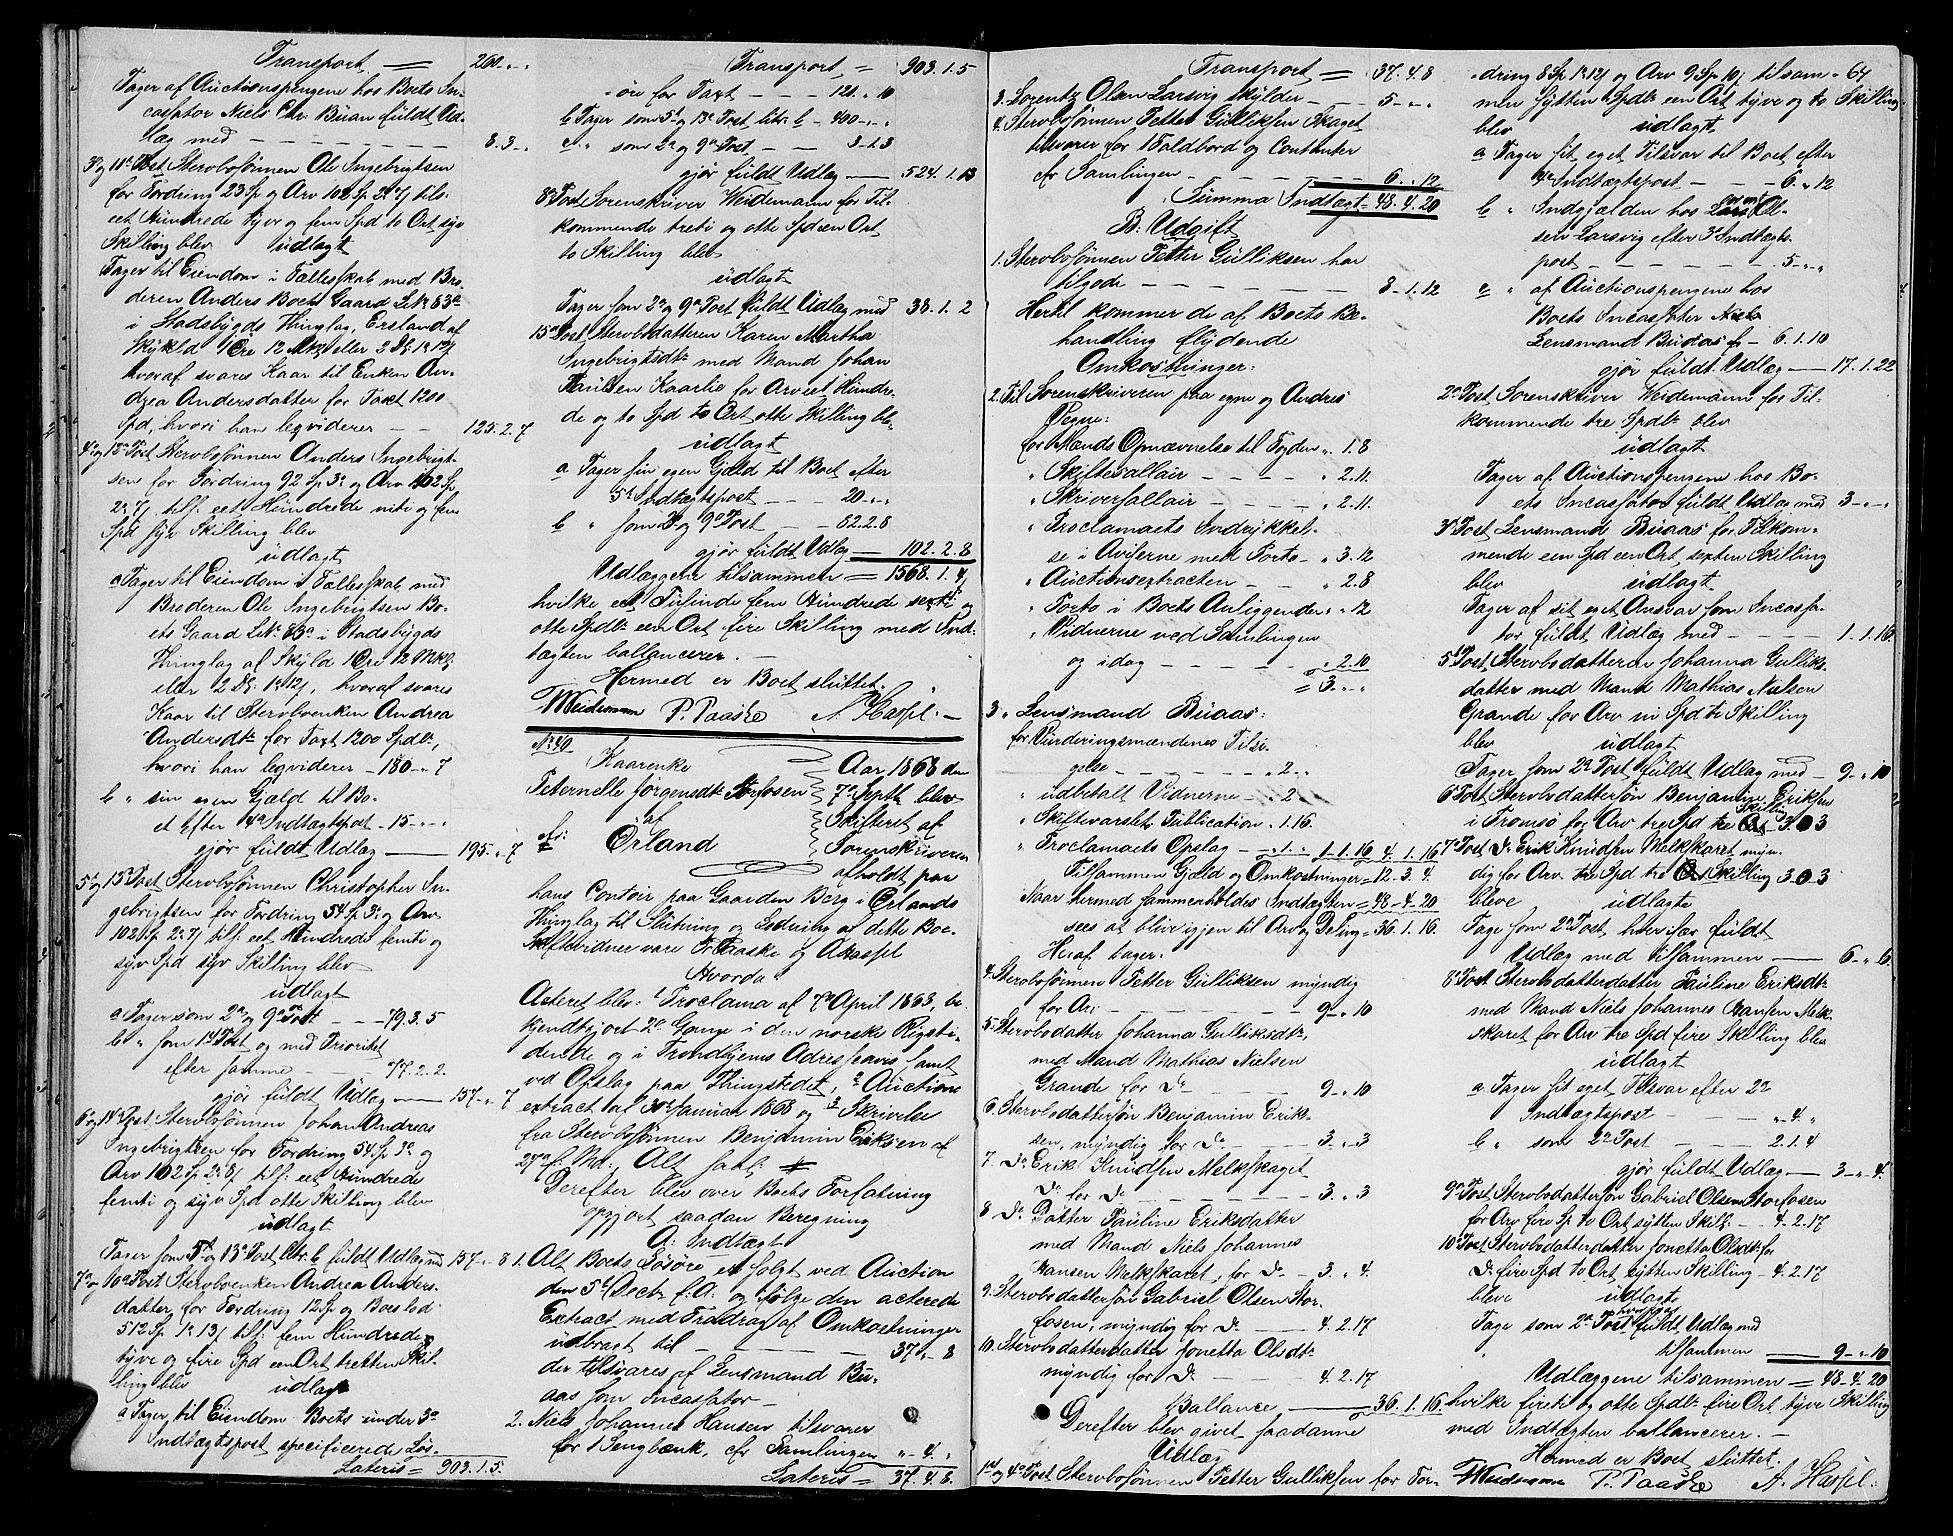 Transport = 260 „ „
Tager af Auctionspengene hos Boets In-
cassator Niels Chr. Büan fuldt Ud-
læg med - - - 8. 3 „
3 og 11te Post Stervbosønnen Ole Ingebrigtsen
for Fordring 23 Sp og Arv 102 Sp. 2. 7 s tils:
eet Hundrede tyve og fem Spd to Ort syv
Skilling blev udlagt
Tager til Eiendom i Fællesskab med Bro-
deren Anders Boets Gaard L. Nr. 83a
i Stadsbygds Thinglag, Ersland af
Skyld 1 Øre 12 Mkl eller 2 D. 1. 12 s
hvoraf svares Kaar til Enken An-
drea Andersdatter for Taxt 1200
Spd, hvori han leqviderer - - 125. 2. 7
4 og 15 Post Stervbosønnen Anders Ingebrigt-
sen for Fordring 92 Sp 3 og Arv 102 Sp
2. 7 s tils. eet Hundrede niti og fem
Spd syv Skilling blev
udlagt
a Tager til Eiendom i Fællesskab med
Broderen Ole Ingebrigtsen Bo-
ets Gaard L. Nr. 83a i Stadsbygds
Thinglag af Skyld 1 Øre 12 Mkl
eller 2 D: 1. 12 s, hvoraf svares
Kaar til Stervboenken Andrea
Andersdtr for Taxt 1200 Spdlr,
hvori han leqviderer - 180 - „ 7
b „ sin egen Gjæld til Bo-
et efter 4de Indtægtspost - 15 - „ „
gjør fuldt Udlæg — 195. „ 7
5 og 15 Post Stervbosønnen Christopher In-
gebrigtsen for Fordring 54 Sp. 3 og Arv
102 Sp 2. 7 s tils. eet Hundrede femti og
syv Spd syv Skilling blev
udlagt
a Tager som 2 og 9 Post - - 79. 3. 5
b „ som 14 Post og med Prioritet
efter samme - - 77. 2. 2.
gjør fuldt Udlæg — 157 - „ 7
6 og 14 Post Stervbosønnen Johan Andreas
Ingebrigtsen for Fordring 54 Sp 3 og
Arv 102 Sp. 2. 8 s tils: eet Hundrede
femti og syv Spd otte Skilling blev
udlagt
Tager som 5 og 13 Post litr. b fuldt Udlæg med 157 - „ 8
7 og 10 Post Stervboenken Andrea Anders-
datter for Fordring 12 Sp og Boeslod
512 Sp 1. 13 s tils: fem Hundrede
tyve og fire Spd een Ort tretten Skil-
ling blev udlagt
a Tager til Eiendom Boets under 3
Indtægtspost specificerede Løs-
Lateris = 903. 1. 5.
Transport = 903. 1. 5
øre for Taxt - - - 120. „ 10
b Tager som 5 og 13 Post litr. b - 400 - „ „
c „ som 2 og 9 Post - - 3 - 1. 3
gjør fuldt Udlæg — 524. 1. 13
8 Post Sorenskriver Weidemann for Til-
kommende treti og otte Spd een Ort
to Skilling blev
udlagt
Tager som 2 og 9 Post fuldt Udlæg med 38. 1. 2
15 Post Stervbodatteren Karen Martha
Ingebrigtsdtr med Mand Johan
Paulsen Kaarlie for Arv eet Hundre-
de og to Spd to Ort otte Skilling ble-
udlagt
a Tager sin egen Gjæld til Boet efter
5 Indtægtspost - - - 20. „ „
b „ som 2 og 9 Post - - 82. 2. 8
gjør fuldt Udlæg — 102. 2. 8
Udlæggene tilsammen = 1568. 1. 4
hvilke eet Tusinde fem Hundrede sexti og
otte Spdlr een Ort fire Skilling med Ind-
tægten ballancerer. —
Hermed er Boet sluttet.
Weidemann P. Paaske A. Hassel. —
No 40
Kaarenke
Peternelle Jørgensdtr Storfosen
af
Ørland
Aar 1868 den
7 Septbr blev
Skifteret af
Sorenskriveren
afholdt paa
hans Contoir paa Gaarden Berg i Ørlands
Thinglag til Slutning og Lodning af dette Boe.
Skiftevidner vare P. Paaske og A. Hassel
Hvorda:
Acteret blev: 1 Proclama af 7 April 1863, be-
kjendtgjort 2 Gange i den norske Rigsti-
dende og i Trondhjems Adresseavis samt
ved Opslag paa Thingstedet, 2 Auctions
extract af 30 Januar 1868 og 3 Skrivelse
fra Stervbosønnen Benjamin Eriksen af
27 f. Md. Alt saal:
Derefter blev over Boets Forfatning
opgjort saadan Beregning
A: Indtægt
1. Alt Boets Løsøre er solgt ved Auction
den 5 Decbr f. A. og ifølge den acterede
Extract med Fradrag af Omkostninger
udbragt til - - - 37 „ - 8
der tilsvares af Lensmand Bü-
aas som Incassator —
2. Niels Johannes Hansen tilsvarer
for 1 Sengbænk, cfr Samlingen „ - 4. „
Lateris = 37. 4. 8.
Transport = 37. 4. 8
3. Lorentz Olsen Larsvig skylder - - 5 - „ „
4. Stervbosønnen Petter Gulliksen Skaget
tilsvarer for 1 Foldbord og Contanter
cfr Samlingen - - - 6. „ 12
Summa Indtægt - 48. 4. 20
B: Udgift
1. Stervbosønnen Petter Gulliksen har
tilgode - - - 8 - 1. 12
Hertil kommer de af Boets Be-
handling flydende
Omkostninger:
2. Til Sorenskriveren paa egne og Andres
Vegne:
for Mænds Opnævnelse til Fogden „ 1. 8
„ Skiftesallair - - - „ 2. 11.
„ Skriversallair - - - „ 2. 11.
„ Proclamaets Indrykkel-
se i Aviserne med Porto - „ 3. 12
„ Auctionsextracten - - „ 2. 8
„ Porto i Boets Anliggender „ „ 12
„ Vidnerne ved Samlingen
og idag - - - „ 2. 10
= 3. „ „
3 „ Lensmand Büaas:
for Vurderingsmændenes Tilsi-
gelse - - - „ 2 - „
„ udbetalt Vidnerne - „ 2 „
„ Skiftevarslets Publication „ 1. 16.
„ Proclamaets Opslag - „ 1. „ 1. 1. 16 4. 1. 16
Tilsammen Gjæld og Omkostninger = 12. 3. 4
Naar hermed sammenholdes Indtægten = 48 - 4. 20
sees at blive igjen til Arv og Deling = 36. 1. 16.
Heraf tager:
4. Stervbosønnen Petter Gulliksen myndig
for Arv - - - 9 - „ 10
5. Stervbodatter Johanna Gulliksdtr,
med Mand Mathias Nielsen
Grande for Do - - - 9. „ 10
6. Stervbodattersøn Benjamin Erik-
sen, myndig for Do - - 3. „ 3
7. Do Erik Knudsen Melkskaget
Do for Do - - - 3. „ 3
8 Do Datter Pauline Eriksdatter
med Mand Niels Johannes
Hansen Melkskaret, for Do - 3. „ 4.
9. Stervbodattersøn Gabriel Olsen Stor-
fosen, myndig for Do - - 4. 2. 17
10. Stervbodatterdatter Jonetta Olsdtr
myndig for Do - - 4. 2. 17
Ballance — 36. 1. 16.
Derefter blev givet saadanne
Udlæg
1 og 4 Post Stervbosønnen Petter Gulliksen for For-
dring 8 Sp 1. 12 s og Arv 9 Sp 10 s tilsam- 64
men sytten Spdlr een Ort tyve og to Skilling
blev udlagt
a Tager sit eget Tilsvar til Boet efter
4 Indtægtspost - - - 6. „ 12
b „ Indgjælden hos Lorentz Ol-
sen Larsvig efter 3 Indtægts-
post - - - 5 - „ „
c „ af Auctionspengene hos
Boets Incassator
Lensmand Büaas f - 6. 1. 10
gjør fuldt Udlæg — 17. 1. 22
2 Post Sorenskriver Weidemann for Til-
kommende tre Spdlr blev
udlagt
Tager af Auctionspengene hos Bo-
ets Incassator fuldt Udlæg med 3 - „ -
3 Post Lensmand Büaas for Tilkom-
mende een Spd een Ort sexten Skilling
blev udlagt
Tager af sit eget Ansvar som Incassa-
tor fuldt Udlæg med - - - 1. 1. 16
5 Post Stervbodatteren Johanna Gulliks-
datter med Mand Mathias Nielsen
Grande for Arv ni Spd ti Skilling
blev udlagt
Tager som 2 Post fuldt Udlæg med - 9 - „ 10
6 Post Stervbodattersøn Benjamin Eriksen
i Tromsø for Arv tre Spd tre Skilling 3. 0 3
7 Post Do Erik Knudsen Melkskaret myn-
dig for Arv tre Spd tre Skilling 3. 0 3
bleve udlagte
Tage som 2 Post hver især fuldt
Udlæg med tilsammen — 6 - „ 6
8 Post Stervbodatterdatter Pauline Eriksdtr
med Mand Niels Johannes Hansen Melk-
skaret for Arv tre Spd fire Skilling blev
udlagt
a Tager sit eget Tilsvar efter 2
Indtægtspost - - - „ 4. „
b „ som 2 Post - - 2. 1. 4
gjør fuldt Udlæg — 3 - „ 4.
9 Post Stervbodattersøn Gabriel Olsen Storfosen
for Arv fire Sp to Ort sytten Skill: - - 4. 2. 17
10 Post Stervbodatterdatter Jonetta Olsdtr for
Do fire Spd to Ort sytten Skilling - 4. 2. 17
bleve udlagt
Tage som 2 Post hver især fuldt Udlæg med
tilsammen — 9 - „ 10
Udlæggene tilsammen = 48. 4. 20
hvilke fireti og otte Spdlr fire Ort tyve Skilling
med Indtægten ballancerer. —
Hermed er Boet sluttet.
Weidemann P. Paaske A. Hassel.